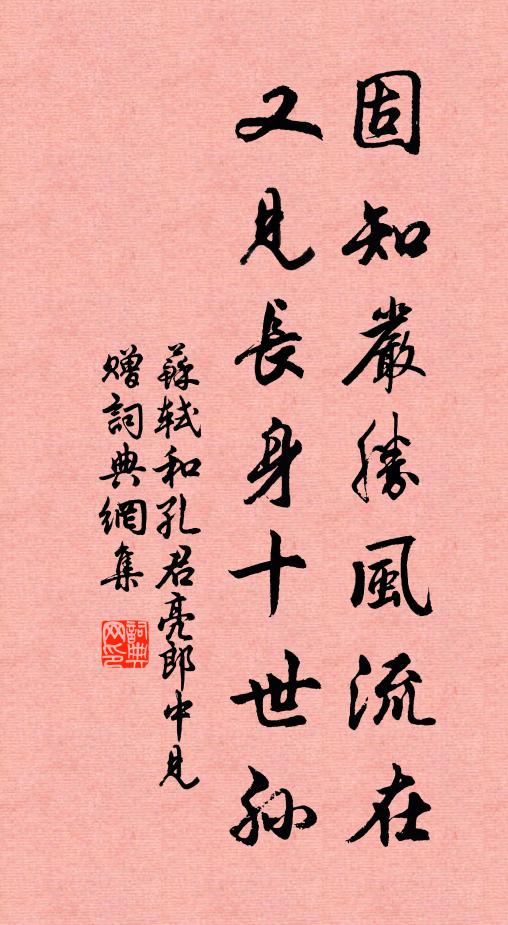 固知嚴勝風流在
又見長身十世孫
蘇軾和孔君亮郎中見
贈詞典網集
詞典
网印